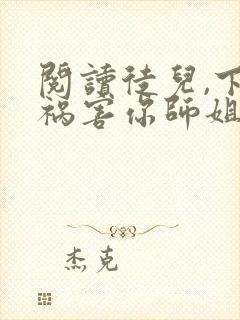 閱讀徒兒,下
禍害你師姐
杰克